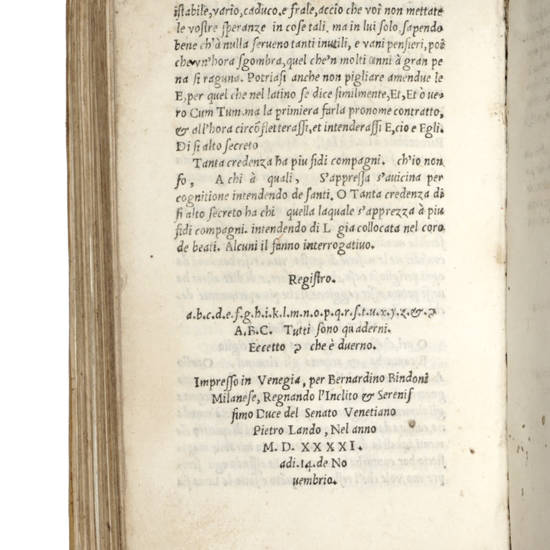 istabile, vario, caduco, e frale, accio che voi non mettate
le vostre speranze in cose tali, ma in lui solo, sapendo
bene ch'à nulla serueno tanti inutili, e vani pensieri, poi
che vn'hora sgombra, quel che'n molti anni à gran pe
na si raguna. Potriasi anche non pigliare amendue le
E, per quel che nel latino se dice similmente, Et, Et ò ue
ro Cum Tum. ma la primiera farla pronome contratto,
& all'hora circõfletterassi, et intenderassi E, cio e Egli.
Di si alto secreto
Tanta credenza ha piu fidi compagni. ch'io non
so, A chi à quali, S'appressa s'auicina per
cognitione intendendo de santi. O Tanta credenza di
si alto secreto ha chi quella laquale s'apprezzà à piu
fidi compagni. intendendo di L gia collocata nel coro
de beati. Alcuni il fanno interrogatiuo.
Registro.
a.b.c.d.e.f.g.h.i.k.l.m.n.o.p.q.r.s.t.u.x.y.z.&.ꝯ
A.B.C. Tutti sono quaderni.
Eccetto ꝯ che è duerno.
Impresso in Venegia, per Bernardino Bindoni
Milanese, Regnando l'Inclito & Serenis
simo Duce del Senato Venetiano
Pietro Lando, Nel anno
M. D. XXXXI.
adi. 14. de No
uembrio.